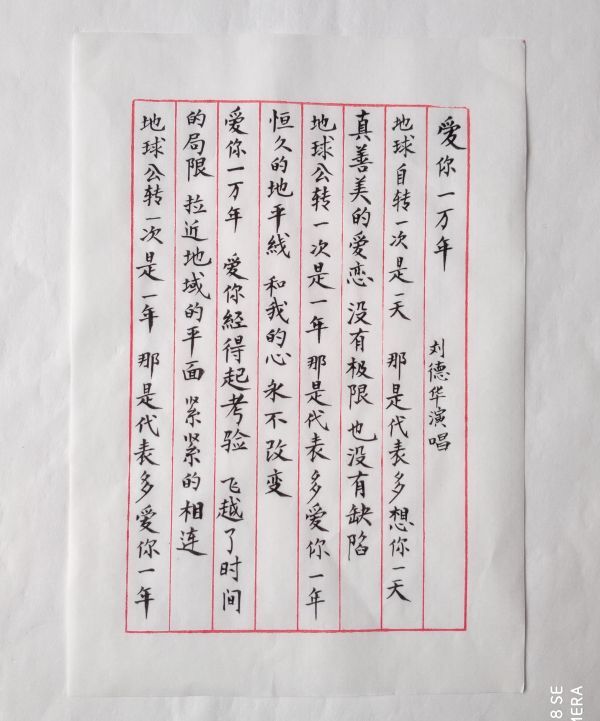 爱你一万年 刘德华演唱
地球自转一次是一天 那是代表多想你一天
真善美的爱恋 没有极限 也没有缺陷
地球公转一次是一年 那是代表多爱你一年
恒久的地平线 和我的心 永不改变
爱你一万年 爱你经得起考验 飞越了时间
的局限 拉近地域的平面 紧紧的相连
地球公转一次是一年 那是代表多爱你一年
8 SE
MERA